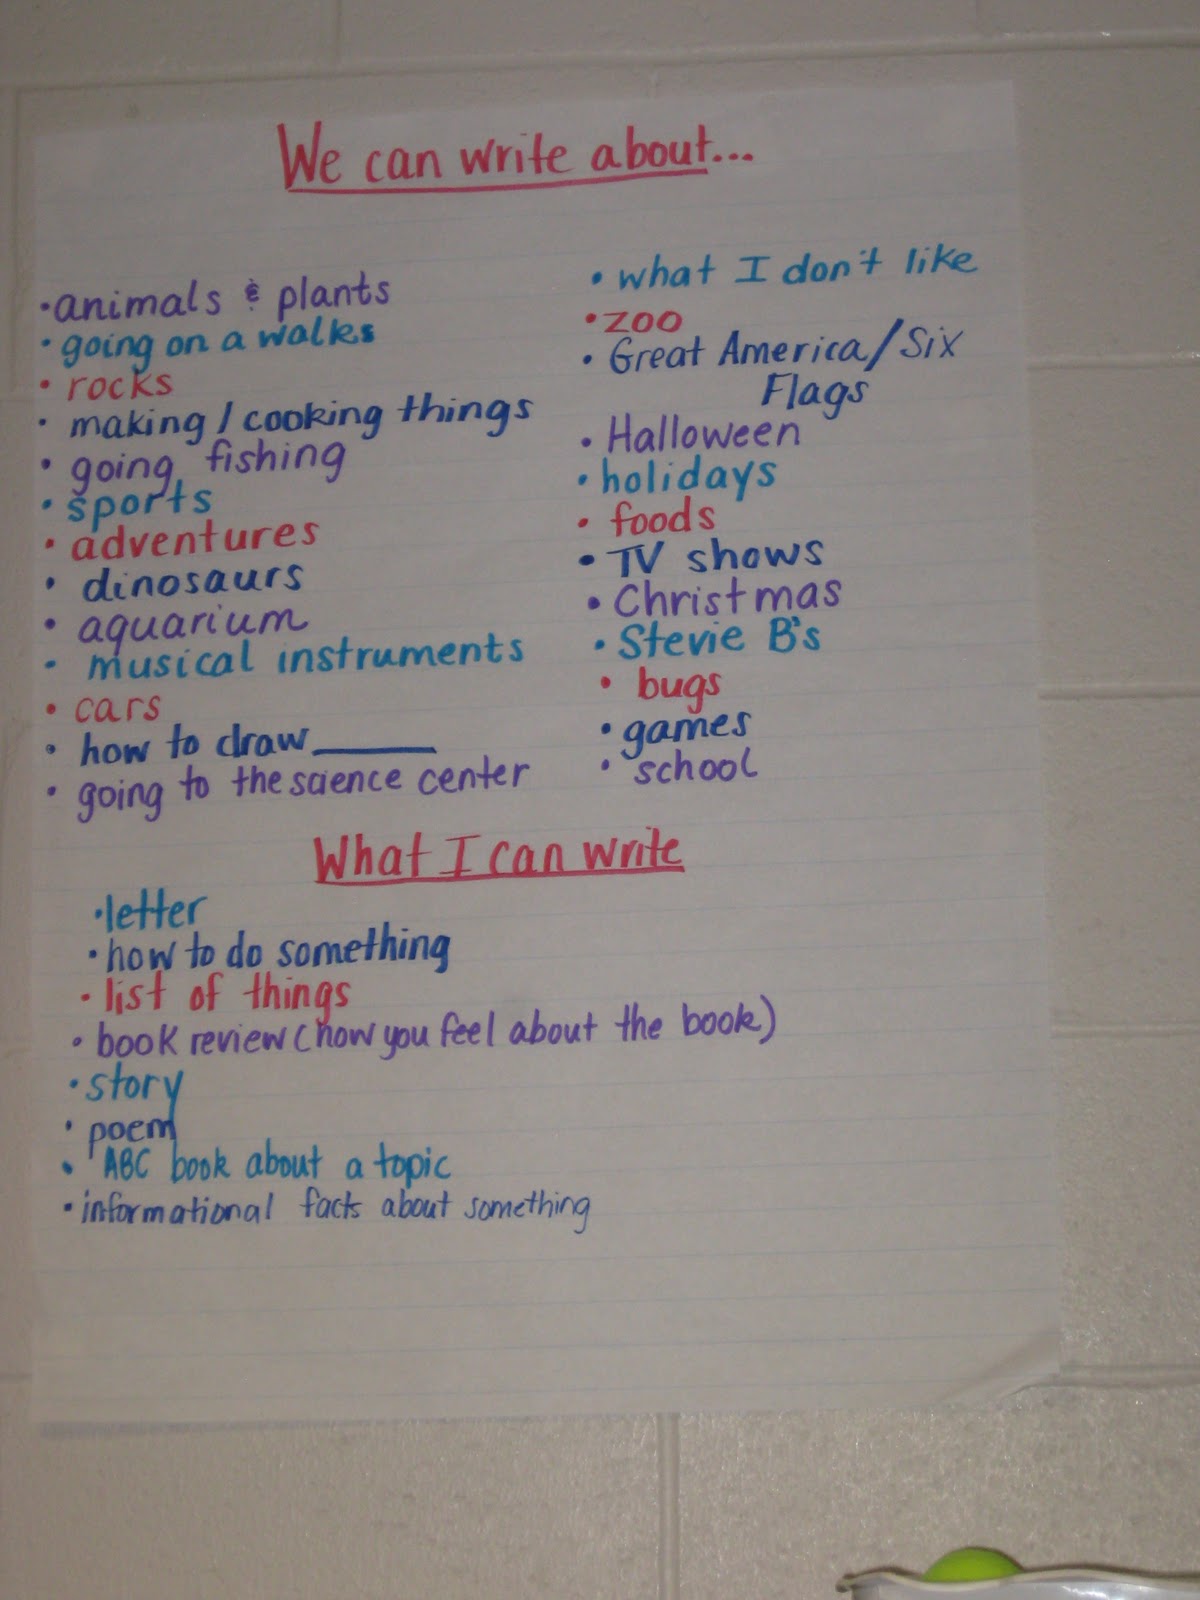 We can write about...
•animals & plants
•going on a walks
•rocks
•making/cooking things
•going fishing
•sports
•adventures
•dinosaurs
•aquarium
•musical instruments
•cars
•how to draw______
•going to the science center
•what I don't like
•zoo
•Great America/Six
Flags
•Halloween
•holidays
•foods
•TV shows
•Christmas
•Stevie B's
•bugs
•games
•school
What I can write
•letter
•how to do something
•list of things
•book review (how you feel about the book)
•story
•poem
•ABC book about a topic
•informational facts about something